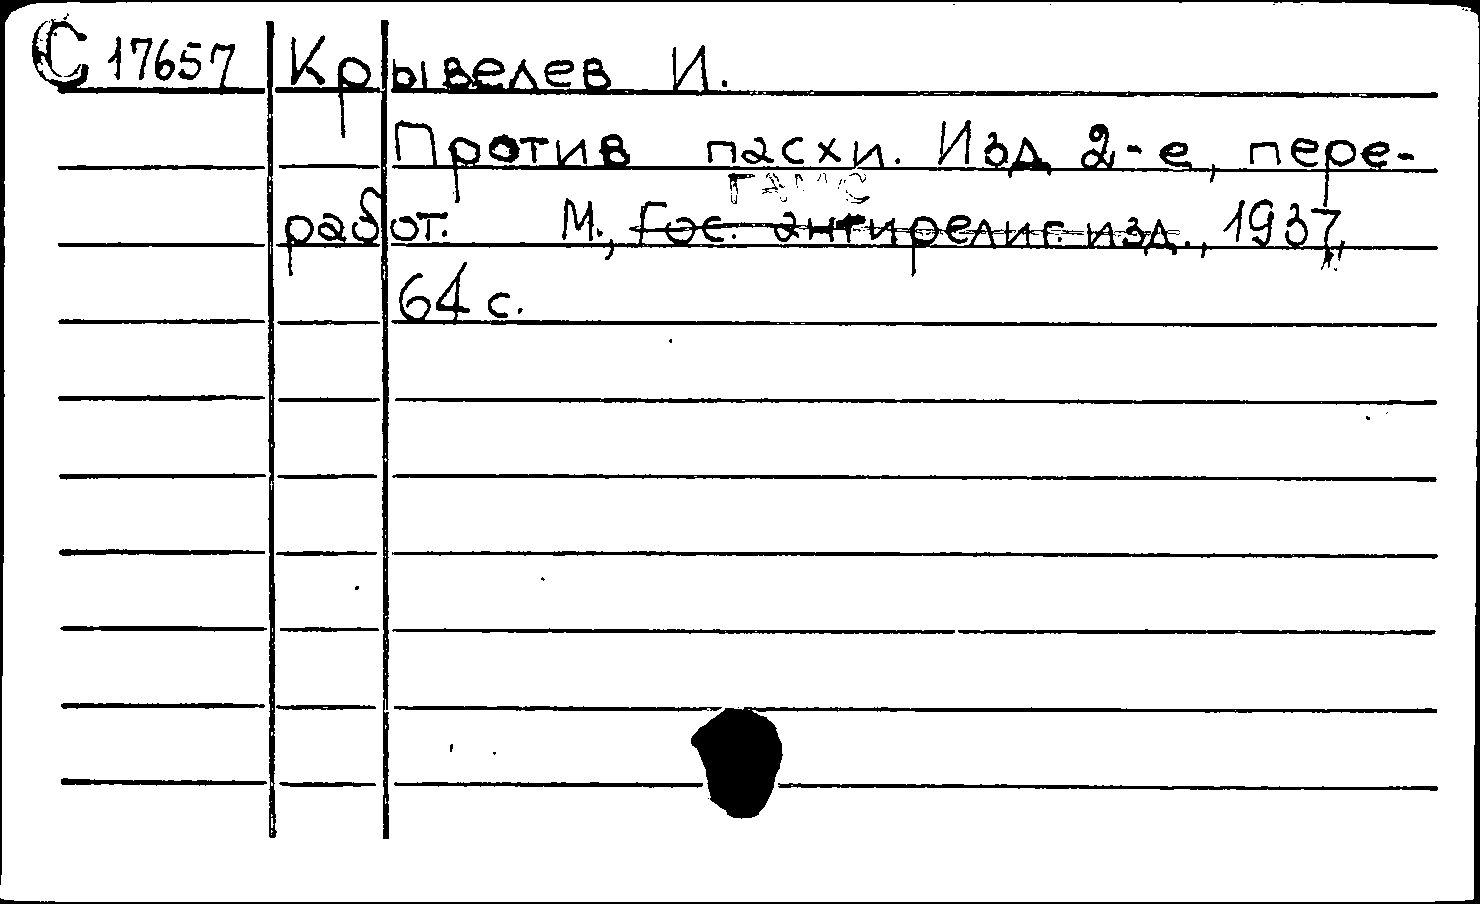 С 17657 Крывелев И.
Против пасхи. Изд 2-е, пере-
работ. М., Гос. антирелиг. изд., 1937,
64 с.